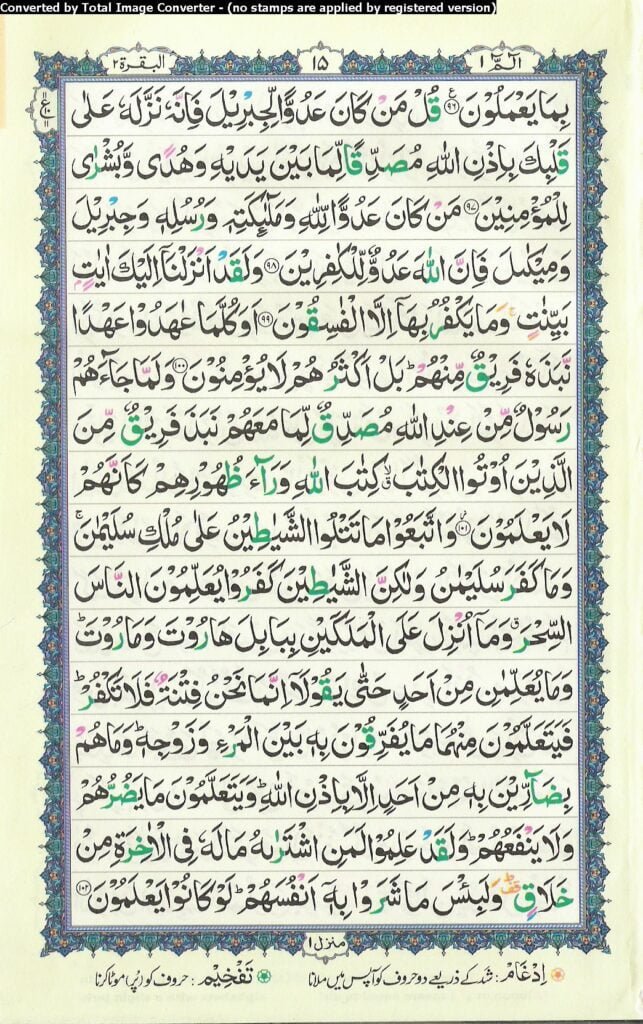 Converted by Total Image Converter - (no stamps are applied by registered version)
الٓمّٓ ١ ١٥ البقرة ٢
بِمَا يَعْمَلُوْنَ ۝۹۶ قُلْ مَنْ كَانَ عَدُوًّا لِّجِبْرِيْلَ فَاِنَّهٗ نَزَّلَهٗ عَلٰى
قَلْبِكَ بِاِذْنِ اللّٰهِ مُصَدِّقًا لِّمَا بَيْنَ يَدَيْهِ وَهُدًى وَّبُشْرٰى
لِلْمُؤْمِنِيْنَ ۝۹۷ مَنْ كَانَ عَدُوًّا لِّلّٰهِ وَمَلٰٓئِكَتِهٖ وَرُسُلِهٖ وَجِبْرِيْلَ
وَمِيْكٰىلَ فَاِنَّ اللّٰهَ عَدُوٌّ لِّلْكٰفِرِيْنَ ۝۹۸ وَلَقَدْ اَنْزَلْنَآ اِلَيْكَ اٰيٰتٍۭ
بَيِّنٰتٍ ۚ وَمَا يَكْفُرُ بِهَآ اِلَّا الْفٰسِقُوْنَ ۝۹۹ اَوَكُلَّمَا عٰهَدُوْا عَهْدًا
نَّبَذَهٗ فَرِيْقٌ مِّنْهُمْ ؕ بَلْ اَكْثَرُهُمْ لَا يُؤْمِنُوْنَ ۝۱۰۰ وَلَمَّا جَآءَهُمْ
رَسُوْلٌ مِّنْ عِنْدِ اللّٰهِ مُصَدِّقٌ لِّمَا مَعَهُمْ نَبَذَ فَرِيْقٌ مِّنَ
الَّذِيْنَ اُوْتُوا الْكِتٰبَ ۙ كِتٰبَ اللّٰهِ وَرَآءَ ظُهُوْرِهِمْ كَاَنَّهُمْ
لَا يَعْلَمُوْنَ ۝۱۰۱ وَاتَّبَعُوْا مَا تَتْلُوا الشَّيٰطِيْنُ عَلٰى مُلْكِ سُلَيْمٰنَ ۚ
وَمَا كَفَرَ سُلَيْمٰنُ وَلٰكِنَّ الشَّيٰطِيْنَ كَفَرُوْا يُعَلِّمُوْنَ النَّاسَ
السِّحْرَ ۗ وَمَآ اُنْزِلَ عَلَى الْمَلَكَيْنِ بِبَابِلَ هَارُوْتَ وَمَارُوْتَ ؕ
وَمَا يُعَلِّمٰنِ مِنْ اَحَدٍ حَتّٰى يَقُوْلَآ اِنَّمَا نَحْنُ فِتْنَةٌ فَلَا تَكْفُرْ ؕ
فَيَتَعَلَّمُوْنَ مِنْهُمَا مَا يُفَرِّقُوْنَ بِهٖ بَيْنَ الْمَرْءِ وَزَوْجِهٖ ؕ وَمَا هُمْ
بِضَآرِّيْنَ بِهٖ مِنْ اَحَدٍ اِلَّا بِاِذْنِ اللّٰهِ ؕ وَيَتَعَلَّمُوْنَ مَا يَضُرُّهُمْ
وَلَا يَنْفَعُهُمْ ؕ وَلَقَدْ عَلِمُوْا لَمَنِ اشْتَرٰىهُ مَا لَهٗ فِى الْاٰخِرَةِ مِنْ
خَلَاقٍ ؕ وَلَبِئْسَ مَا شَرَوْا بِهٖٓ اَنْفُسَهُمْ ؕ لَوْ كَانُوْا يَعْلَمُوْنَ ۝۱۰۲
منزل ١
اِدْغَام: شد کے ذریعے دو حروف کو آپس میں ملانا تَفْخِيْم: حروف کو (پُر) موٹا کرنا